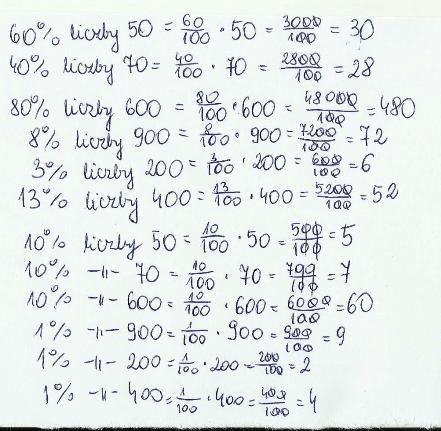 60% liczby 50 = 60/100 · 50 = 3000/100 = 30
40% liczby 70 = 40/100 · 70 = 2800/100 = 28
80% liczby 600 = 80/100 · 600 = 48000/100 = 480
8% liczby 900 = 8/100 · 900 = 7200/100 = 72
3% liczby 200 = 3/100 · 200 = 600/100 = 6
13% liczby 400 = 13/100 · 400 = 5200/100 = 52
10% liczby 50 = 10/100 · 50 = 500/100 = 5
10% -||- 70 = 10/100 · 70 = 700/100 = 7
10% -||- 600 = 10/100 · 600 = 6000/100 = 60
1% -||- 900 = 1/100 · 900 = 900/100 = 9
1% -||- 200 = 1/100 · 200 = 200/100 = 2
1% -||- 400 = 1/100 · 400 = 400/100 = 4